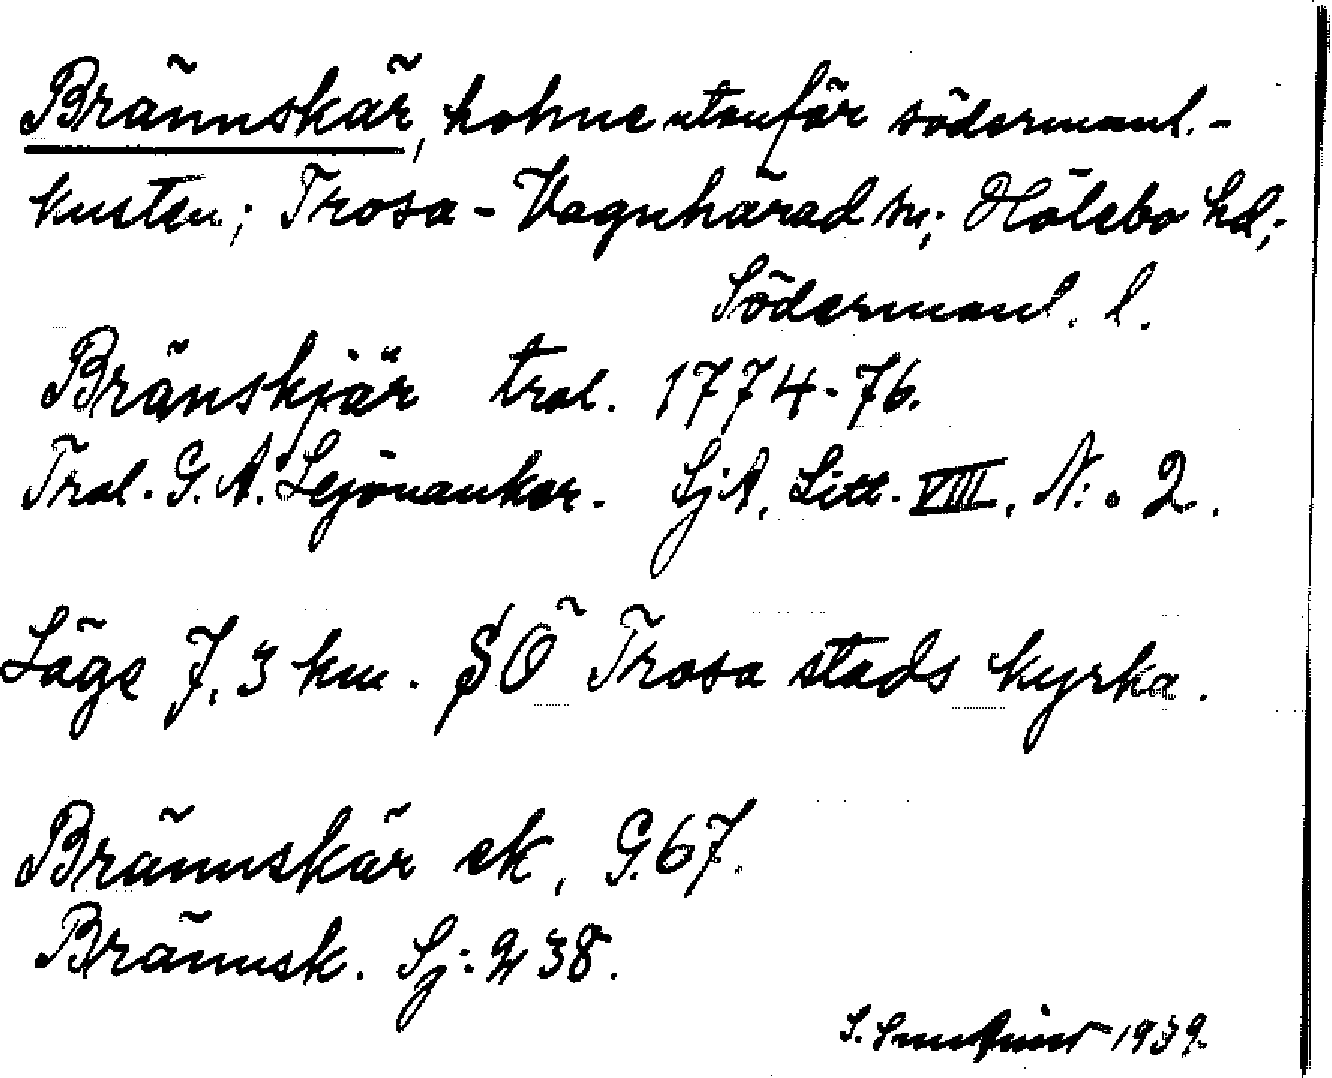 Brännskär, holme utanför södermanl.-
kusten; Trosa-Vagnhärad sn; Hölebo hd;
Södermanl. l.
Bränskjär trol. 1774-76.
Trol. G. A. Lejonanker. SjA, Litt. VIII. N:o 2.
Läge 7,3 km. SÖ Trosa stads kyrka.
Brännskär ek, G. 67.
Brännsk. Sj: 238.
S. 1939.